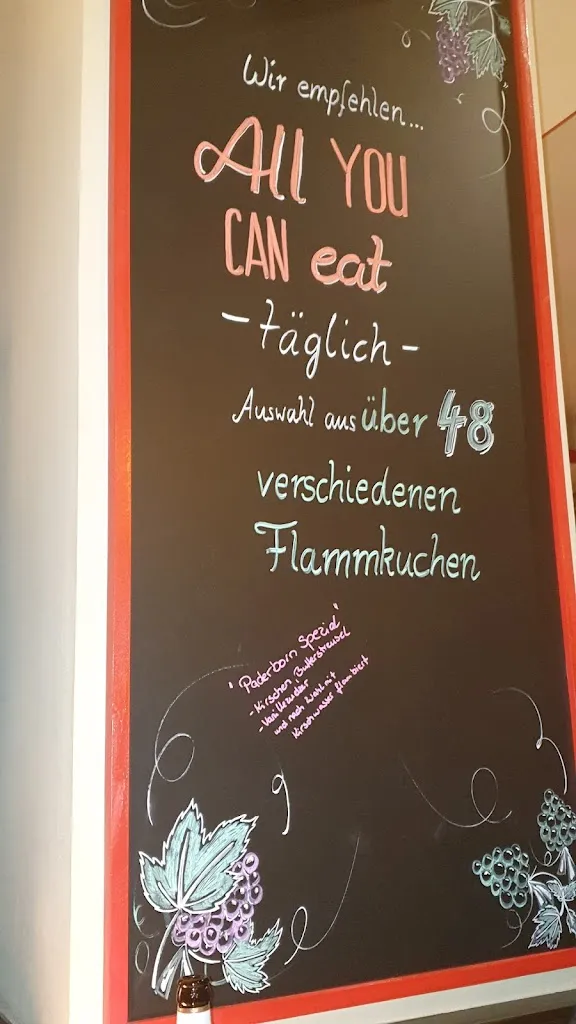 Wir empfehlen...
All YOU
CAN eat
- täglich -
Auswahl aus über 48
verschiedenen
Flammkuchen
"Paderborn Spezial"
- Kirschen, Butterstreusel
- Vanillezucker
und nach Wahl mit
Kirschwasser flambiert